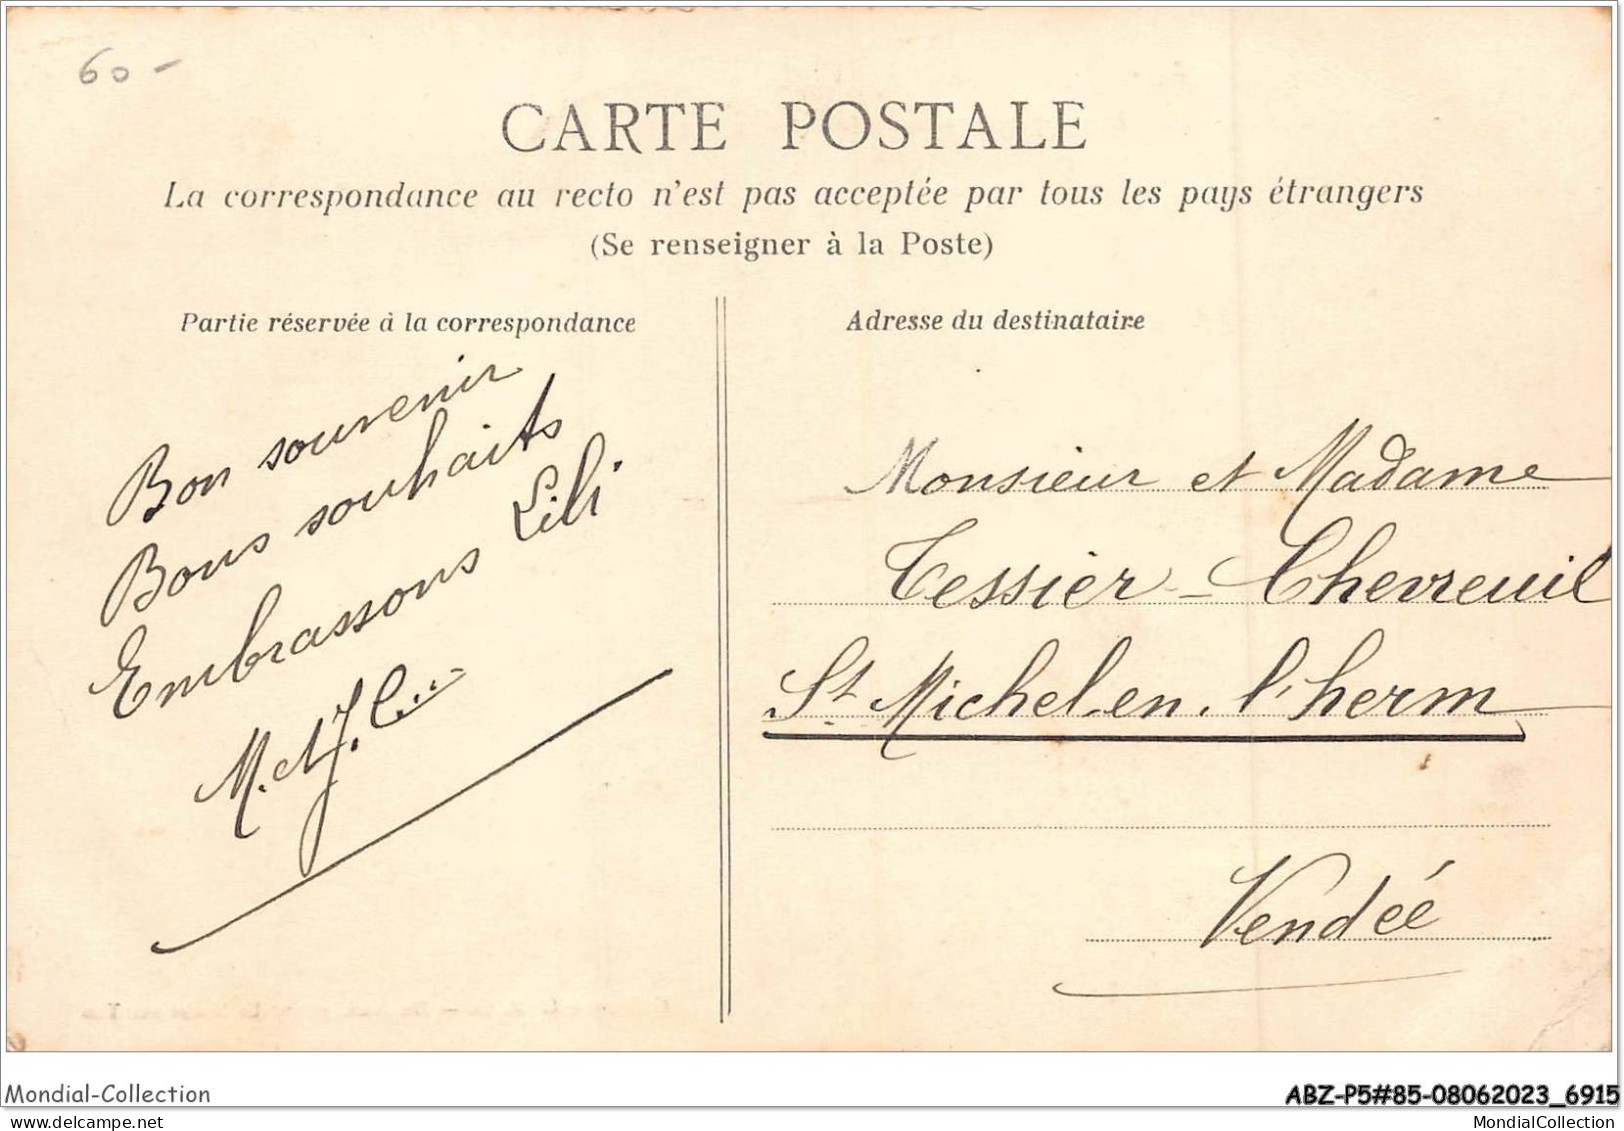 60 -
CARTE POSTALE
La correspondance au recto n'est pas acceptée par tous les pays étrangers
(Se renseigner à la Poste)
Partie réservée à la correspondance
Bon souvenir
Bons souhaits
Embrassons Lili
M. et J. C...
Adresse du destinataire
Monsieur et Madame
Tessier - Chevreuil
St. Michel-en-l'herm
Vendée
Mondial-Collection
ABZ-P5#85-08062023_6915
www.delcampe.net
MondialCollection